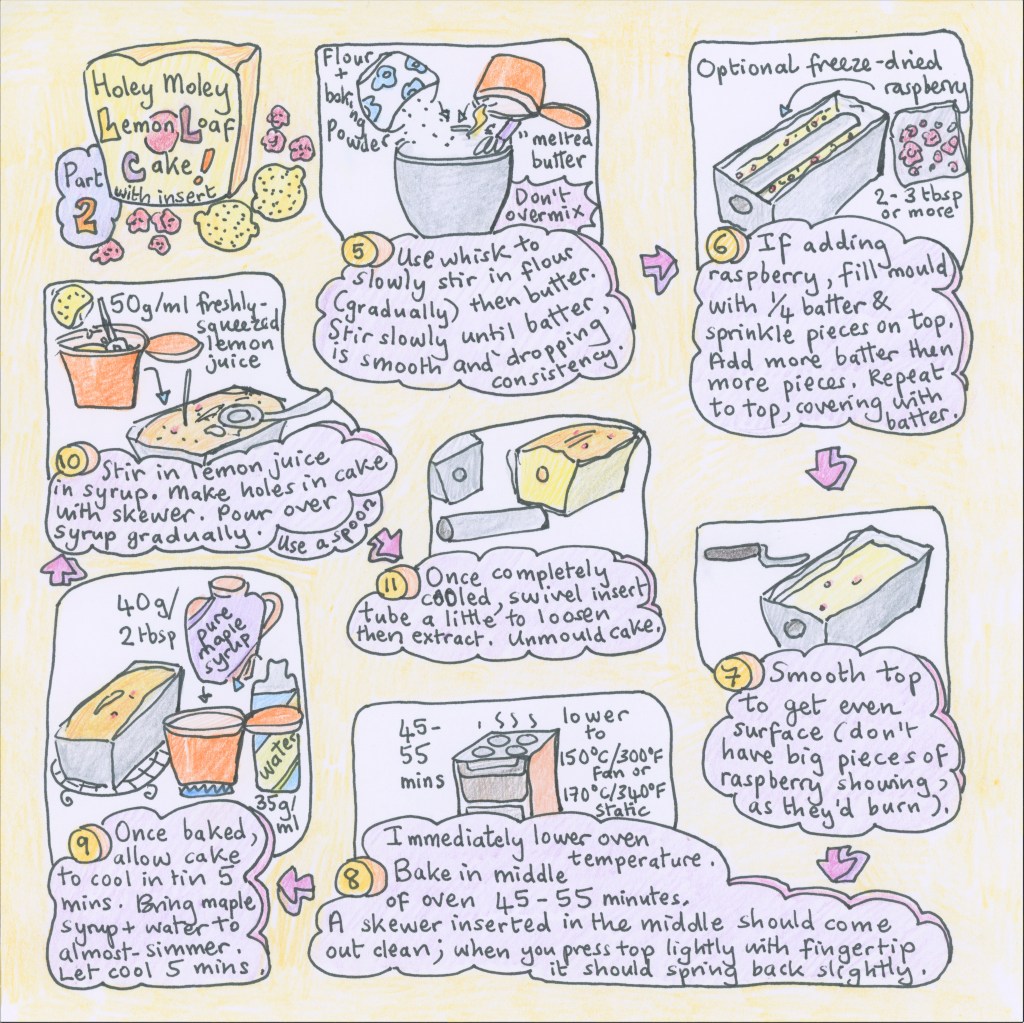 Holey Moley
Lemon Loaf
Cake!
with insert
Part
2
Flour
+
baking
Powder
melted
butter
Don't
overmix
5 Use whisk to
slowly stir in flour
(gradually) then butter.
Stir slowly until batter,
is smooth and 'dropping
consistency.
Optional freeze-dried
raspberry
2-3 tbsp
or more
6 If adding
raspberry, fill mould
with 1/4 batter &
sprinkle pieces on top.
Add more batter then
more pieces. Repeat
to top, covering with
batter.
7 Smooth top
to get even
surface (don't
have big pieces of
raspberry showing,
as they'd burn).
45-
55
mins
lower
to
150°C/300°F
Fan or
170°C/340°F
Static
8 Immediately lower oven
temperature.
Bake in middle
of oven 45-55 minutes.
A skewer inserted in the middle should come
out clean; when you press top lightly with fingertip
it should spring back slightly.
40g/
2 tbsp
pure
maple
syrup
water
35g/
ml
9 Once baked,
allow cake
to cool in tin 5
mins. Bring maple
syrup + water to
almost-simmer.
Let cool 5 mins.
50g/ml freshly-
squeezed
lemon
juice
10 Stir in lemon juice
in syrup. Make holes in cake
with skewer. Pour over
syrup gradually.
Use a spoon
11 Once completely
cooled, swivel insert
tube a little to loosen
then extract. Unmould cake.